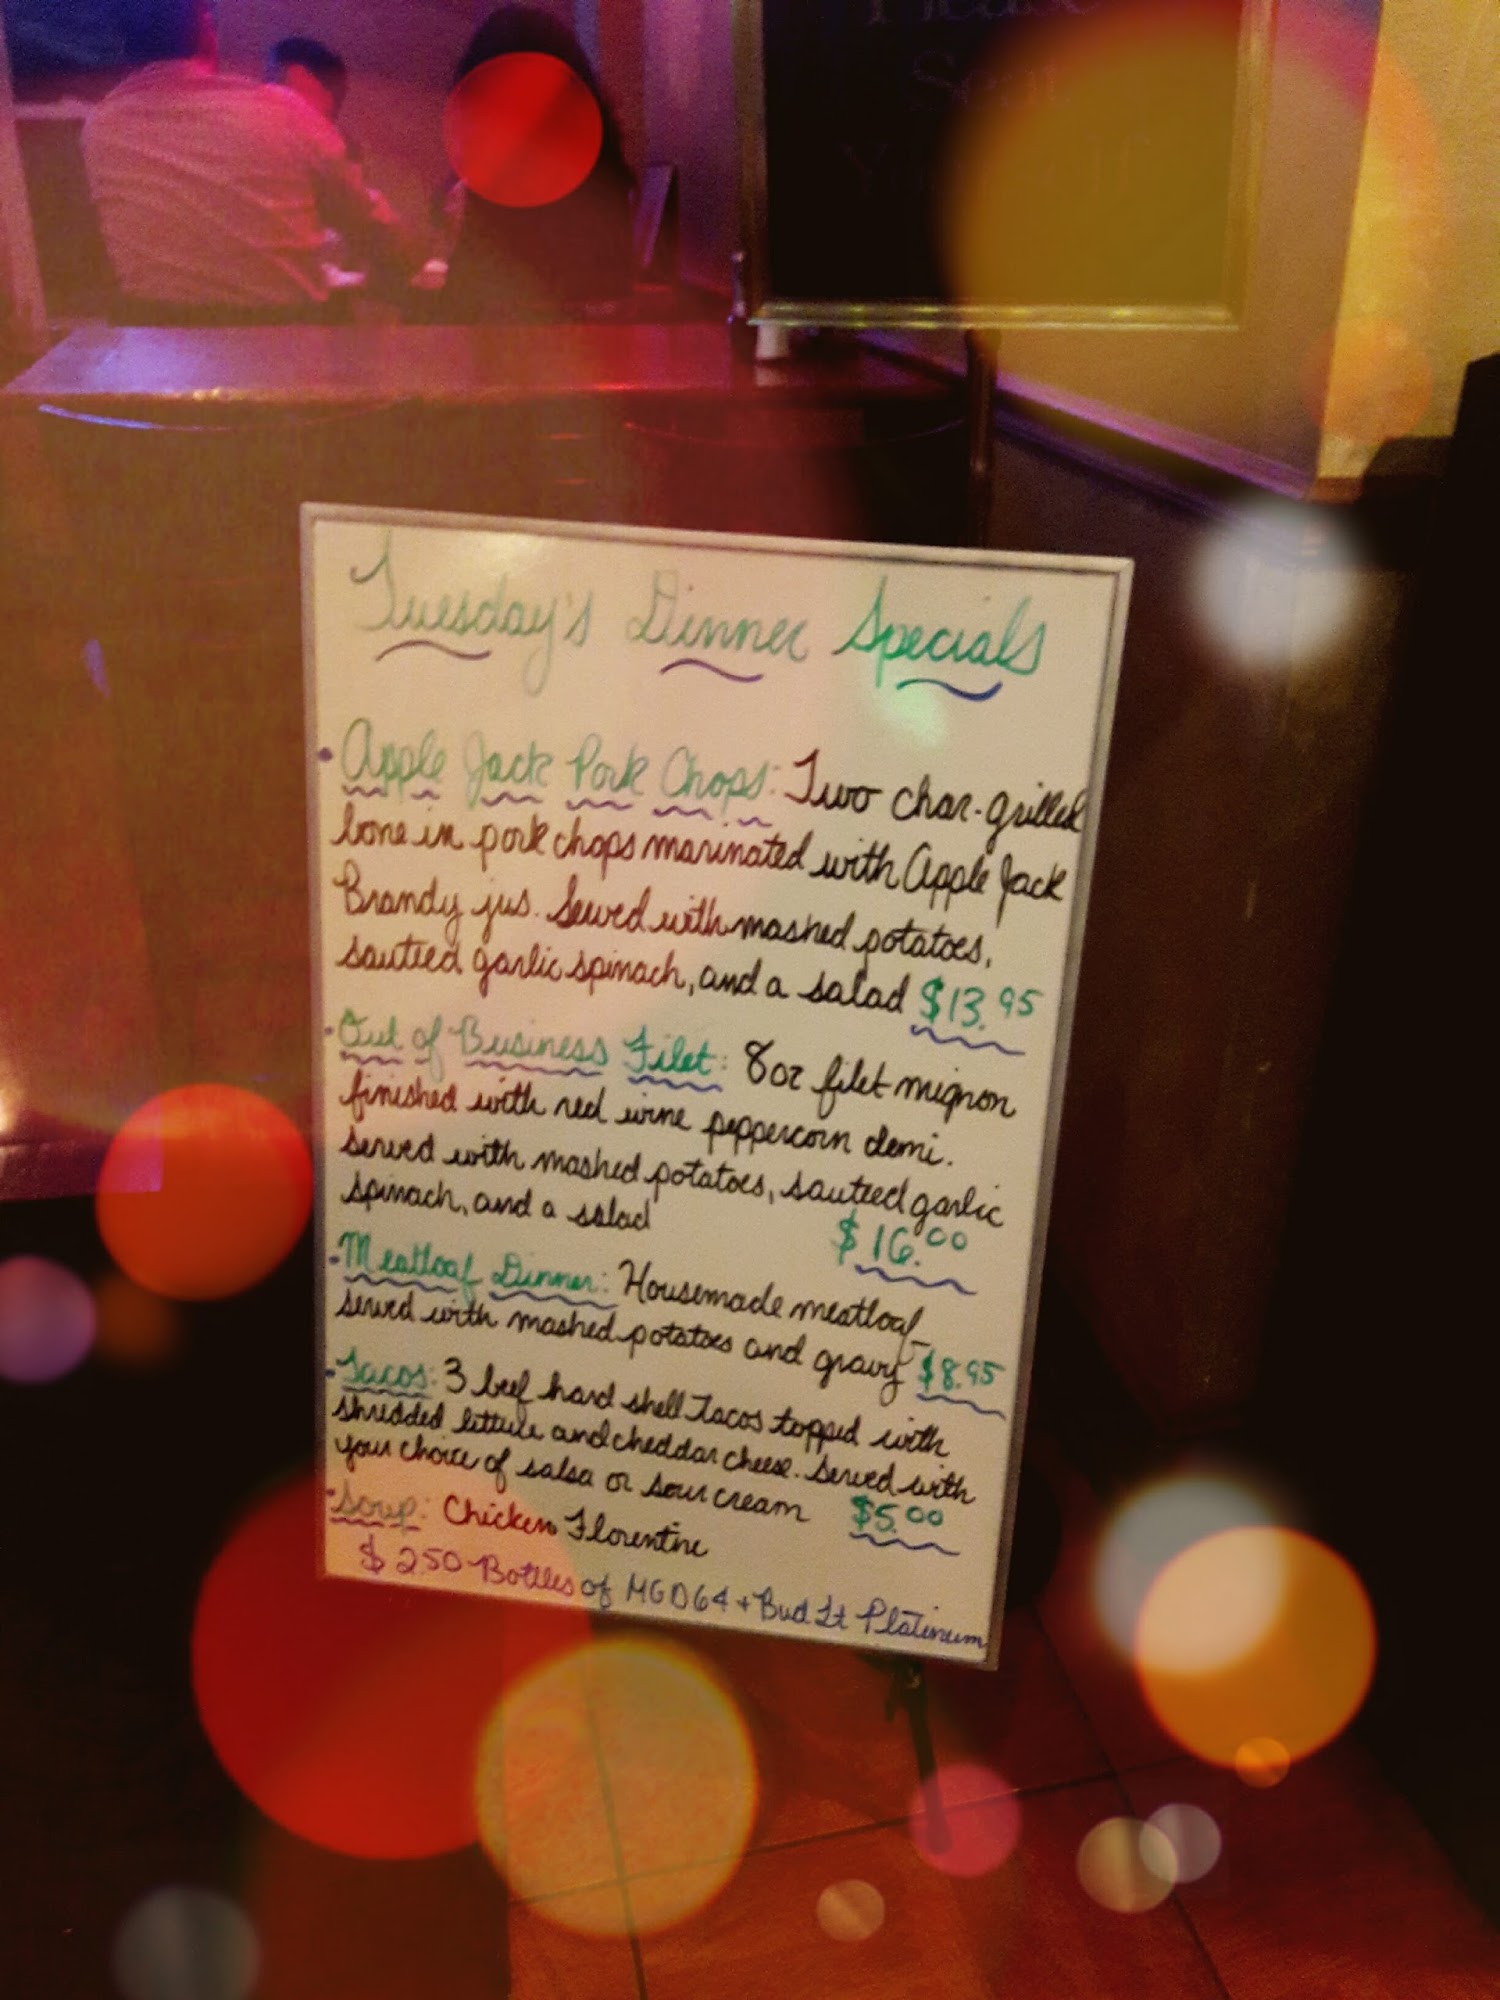 Please
Seat
Tuesday's Dinner Specials
• Apple Jack Pork Chops: Two char-grilled
bone in pork chops marinated with Apple Jack
Brandy jus. Served with mashed potatoes,
sauteed garlic spinach, and a salad $13.95
• Out of Business Filet: 8oz filet mignon
finished with red wine peppercorn demi.
served with mashed potatoes, sauteed garlic
spinach, and a salad $16.00
• Meatloaf Dinner: Housemade meatloaf
served with mashed potatoes and gravy $8.95
• Tacos: 3 beef hard shell Tacos topped with
shredded lettuce and cheddar cheese. Served with
your choice of salsa or sour cream $5.00
• Soup: Chicken Florentine
$2.50 Bottles of MGD64 + Bud Lt Platinum